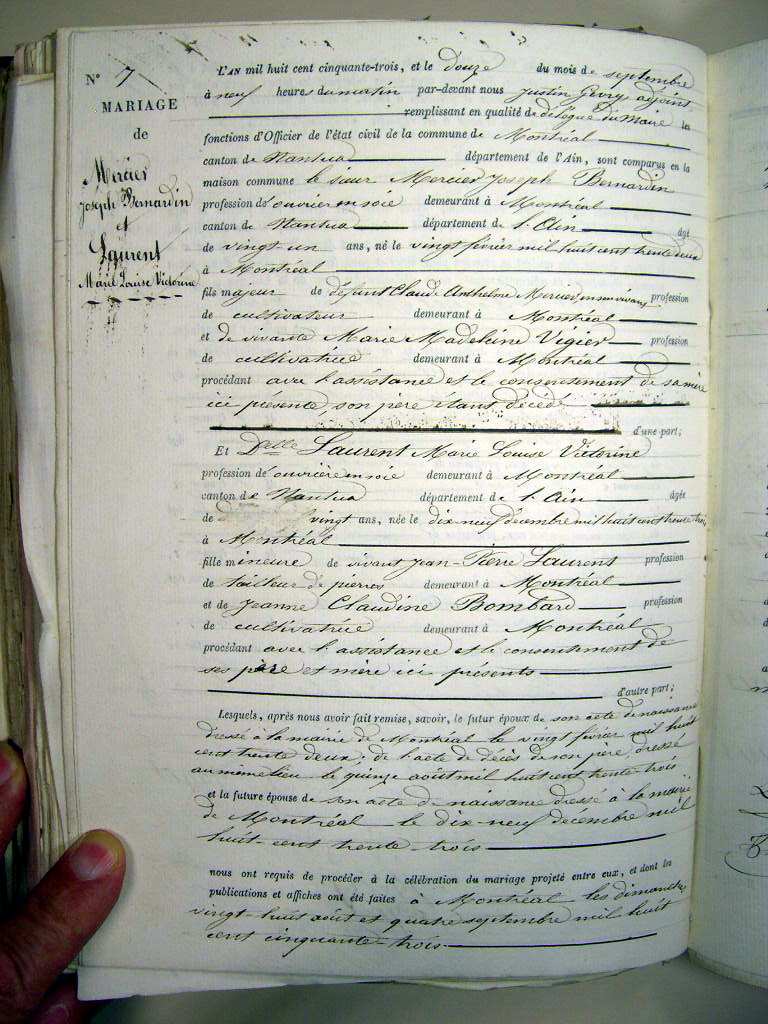 N° 7
MARIAGE
de
Mercier
Joseph Bernardin
et
Laurent
Marie Louise Victorine
L'AN mil huit cent cinquante-trois, et le douze du mois de septembre
à neuf heures du matin par-devant nous Justin Gevry adjoint
remplissant en qualité de délégué du Maire les
fonctions d'Officier de l'état civil de la commune de Montréal
canton de Nantua département de l'Ain, sont comparus en la
maison commune le sieur Mercier Joseph Bernardin
profession d'ouvrier en soie demeurant à Montréal
canton de Nantua département de l'Ain âgé
de vingt un ans, né le vingt février mil huit cent trente deux
à Montréal
fils majeur de défunt Claude Anthelme Mercier en son vivant profession
de cultivateur demeurant à Montréal
et de vivante Marie Madeleine Vigier profession
de cultivatrice demeurant à Montréal
procédant avec l'assistance et le consentement de sa mère
ici présente, son père étant décédé
d'une part;
Et Delle Laurent Marie Louise Victorine
profession d'ouvrière en soie demeurant à Montréal
canton de Nantua département de l'Ain âgée
de vingt ans, née le dix-neuf décembre mil huit cent trente trois
à Montréal
fille mineure de vivant Jean-Pierre Laurent profession
de tailleur de pierres demeurant à Montréal
et de Jeanne Claudine Bombard profession
de cultivatrice demeurant à Montréal
procédant avec l'assistance et le consentement de
ses père et mère ici présents
d'autre part;
Lesquels, après nous avoir fait remise, savoir, le futur époux de son acte de naissance
dressé à la mairie de Montréal le vingt février mil huit
cent trente deux; de l'acte de décès de son père, dressé
au même lieu le quinze août mil huit cent trente-trois
et la future épouse de son acte de naissance dressé à la mairie
de Montréal le dix-neuf décembre mil
huit-cent trente trois
nous ont requis de procéder à la célébration du mariage projeté entre eux, et dont les
publications et affiches ont été faites à Montréal les dimanches
vingt huit août et quatre septembre mil huit
cent cinquante-trois